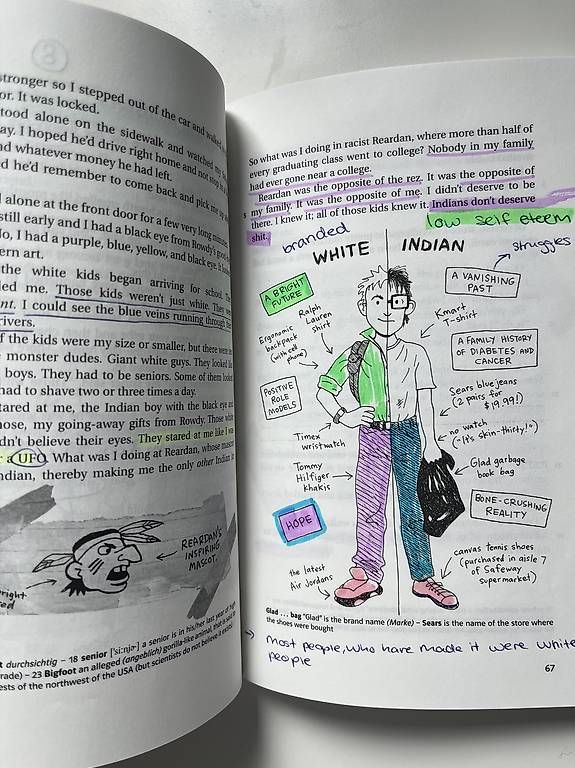 stronger so I stepped out of the car and walked
or. It was locked.
stood alone on the sidewalk and watched my
ay. I hoped he'd drive right home and not stop
nd whatever money he had left.
d he'd remember to come back and pick me up
I alone at the front door for a few very long minutes.
still early and I had a black eye from Rowdy's good
No, I had a purple, blue, yellow, and black eye. It looked
ern art.
the white kids began arriving for school. They
ded me. Those kids weren't just white. They were
ent. I could see the blue veins running through their
rivers.
of the kids were my size or smaller, but there were
monster dudes. Giant white guys. They looked like
boys. They had to be seniors. Some of them looked
had to shave two or three times a day.
stared at me, the Indian boy with the black eye and
nose, my going-away gifts from Rowdy. Those white
dn't believe their eyes. They stared at me like I was
r a UFO. What was I doing at Reardan, whose mascot
ndian, thereby making me the only other Indian in
REARDAN'S
INSPIRING
MASCOT.
bright
red
t durchsichtig – 18 senior ['siːnjə] a senior is in his/her last year of high
rade) – 23 Bigfoot an alleged (angeblich) gorilla-like animal, that is said to
ests of the northwest of the USA (but scientists do not believe it exists)
So what was I doing in racist Reardan, where more than half of
every graduating class went to college? Nobody in my family
had ever gone near a college.
Reardan was the opposite of the rez. It was the opposite of
5 my family. It was the opposite of me. I didn't deserve to be
there. I knew it; all of those kids knew it. Indians don't deserve
shit.
low self eteem
branded
struggles
WHITE INDIAN
A BRIGHT
FUTURE
A VANISHING
PAST
Ralph
Lauren
shirt
Ergonomic
backpack
(with cell
phone)
Kmart
T-shirt
A FAMILY HISTORY
OF DIABETES AND
CANCER
POSITIVE
ROLE
MODELS
Sears blue jeans
(2 pairs for
$19.99!)
Timex
wristwatch
no watch
("It's skin-thirty!")
Tommy
Hilfiger
Khakis
Glad garbage
book bag
BONE-CRUSHING
REALITY
HOPE
the latest
Air Jordans
canvas tennis shoes
(purchased in aisle 7
of Safeway
supermarket)
Glad ... bag "Glad" is the brand name (Marke) – Sears is the name of the store where
the shoes were bought
→ most people, who have made it were white
people
67